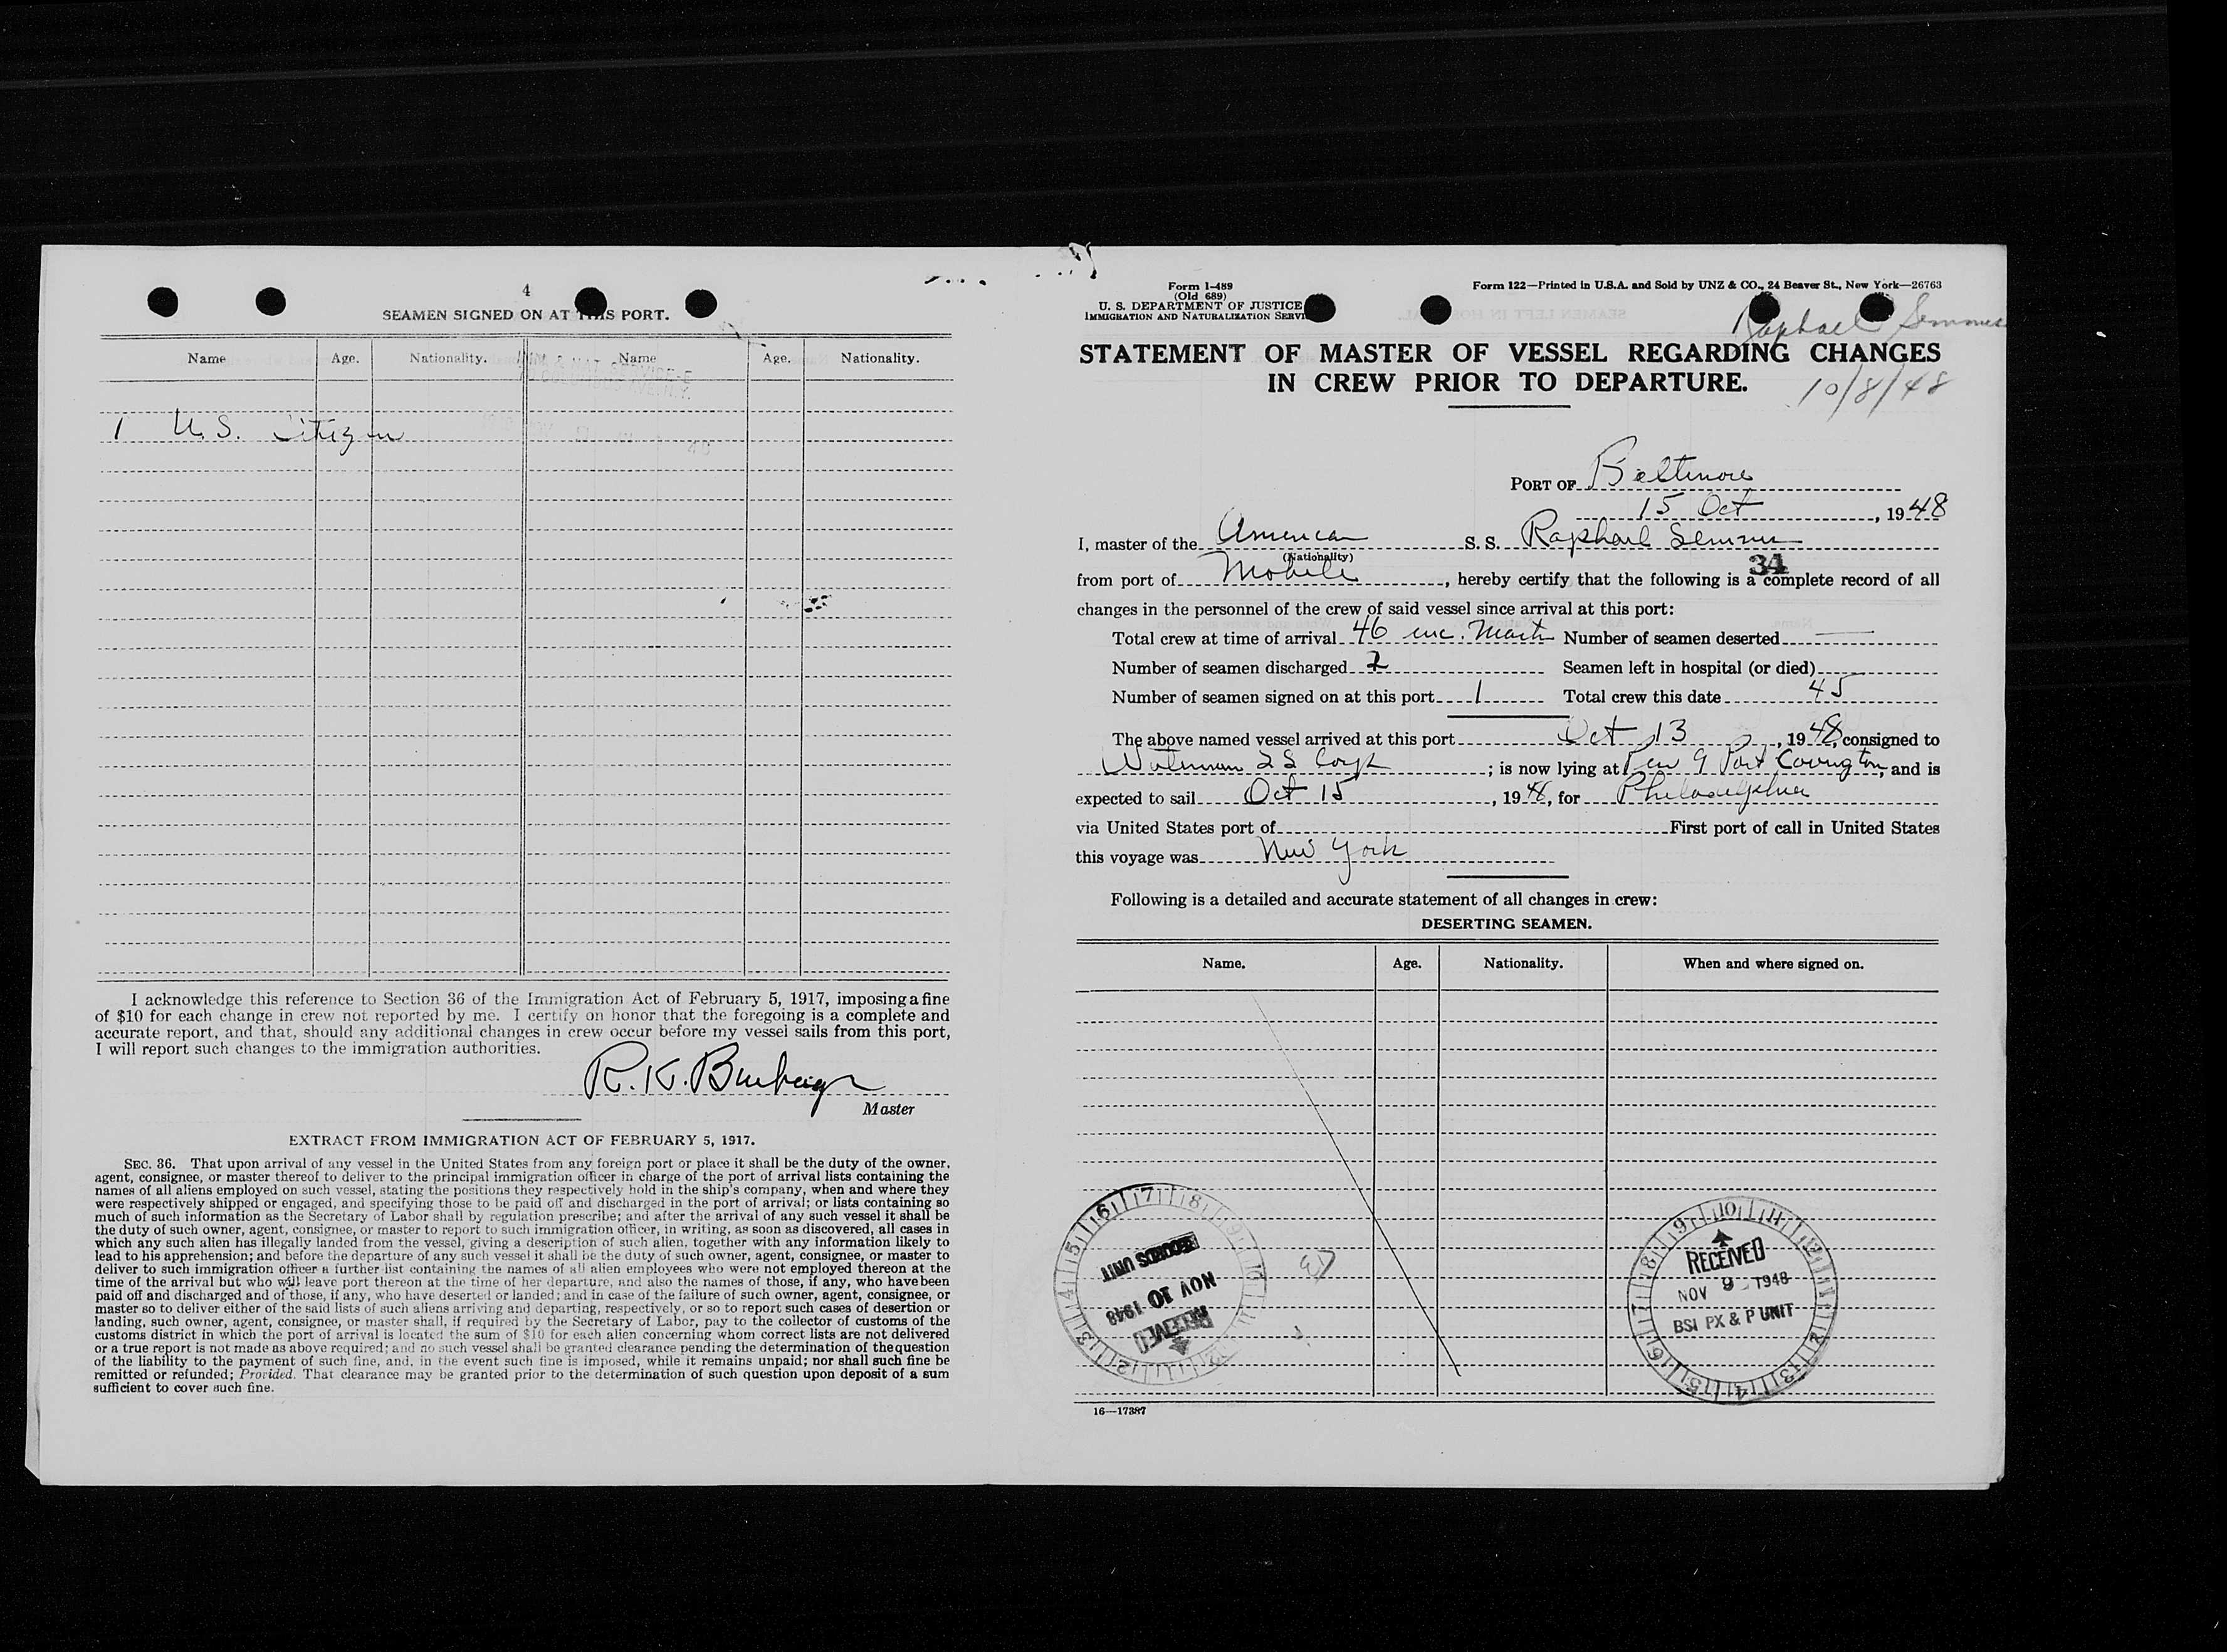 4
SEAMEN SIGNED ON AT THIS PORT.
Name Age. Nationality. Name Age. Nationality.
1 U.S. Citizen
I acknowledge this reference to Section 36 of the Immigration Act of February 5, 1917, imposing a fine
of $10 for each change in crew not reported by me. I certify on honor that the foregoing is a complete and
accurate report, and that, should any additional changes in crew occur before my vessel sails from this port,
I will report such changes to the immigration authorities.
R. K.
Master
EXTRACT FROM IMMIGRATION ACT OF FEBRUARY 5, 1917.
SEC. 36. That upon arrival of any vessel in the United States from any foreign port or place it shall be the duty of the owner,
agent, consignee, or master thereof to deliver to the principal immigration officer in charge of the port of arrival lists containing the
names of all aliens employed on such vessel, stating the positions they respectively hold in the ship's company, when and where they
were respectively shipped or engaged, and specifying those to be paid off and discharged in the port of arrival; or lists containing so
much of such information as the Secretary of Labor shall by regulation prescribe; and after the arrival of any such vessel it shall be
the duty of such owner, agent, consignee, or master to report to such immigration officer, in writing, as soon as discovered, all cases in
which any such alien has illegally landed from the vessel, giving a description of such alien, together with any information likely to
lead to his apprehension; and before the departure of any such vessel it shall be the duty of such owner, agent, consignee, or master to
deliver to such immigration officer a further list containing the names of all alien employees who were not employed thereon at the
time of the arrival but who will leave port thereon at the time of her departure, and also the names of those, if any, who have been
paid off and discharged and of those, if any, who have deserted or landed; and in case of the failure of such owner, agent, consignee, or
master so to deliver either of the said lists of such aliens arriving and departing, respectively, or so to report such cases of desertion or
landing, such owner, agent, consignee, or master shall, if required by the Secretary of Labor, pay to the collector of customs of the
customs district in which the port of arrival is located the sum of $10 for each alien concerning whom correct lists are not delivered
or a true report is not made as above required; and no such vessel shall be granted clearance pending the determination of the question
of the liability to the payment of such fine, and, in the event such fine is imposed, while it remains unpaid; nor shall such fine be
remitted or refunded; Provided, That clearance may be granted prior to the determination of such question upon deposit of a sum
sufficient to cover such fine.
Form I-489
(Old 689)
U. S. DEPARTMENT OF JUSTICE
IMMIGRATION AND NATURALIZATION SERVI
Form 122—Printed in U.S.A. and Sold by UNZ & CO., 24 Beaver St., New York—26763
Raphael Semmes
STATEMENT OF MASTER OF VESSEL REGARDING CHANGES
IN CREW PRIOR TO DEPARTURE.
10/8/48
PORT OF Baltimore
15 Oct, 1948
I, master of the American S. S. Raphael Semmes
(Nationality)
34
from port of Mobile, hereby certify that the following is a complete record of all
changes in the personnel of the crew of said vessel since arrival at this port:
Total crew at time of arrival 46 inc. Number of seamen deserted —
Number of seamen discharged 2 Seamen left in hospital (or died)
Number of seamen signed on at this port 1 Total crew this date 45
The above named vessel arrived at this port Oct 13, 1948, consigned to
Waterman SS Corp; is now lying at Pier 9 Port Covington, and is
expected to sail Oct 15, 1948, for Philadelphia
via United States port of First port of call in United States
this voyage was New York
Following is a detailed and accurate statement of all changes in crew:
DESERTING SEAMEN.
Name. Age. Nationality. When and where signed on.
RECEIVED
NOV 10 1948
RECORDS UNIT
RECEIVED
NOV 9 - 1948
BSI PX & P UNIT
16—17387